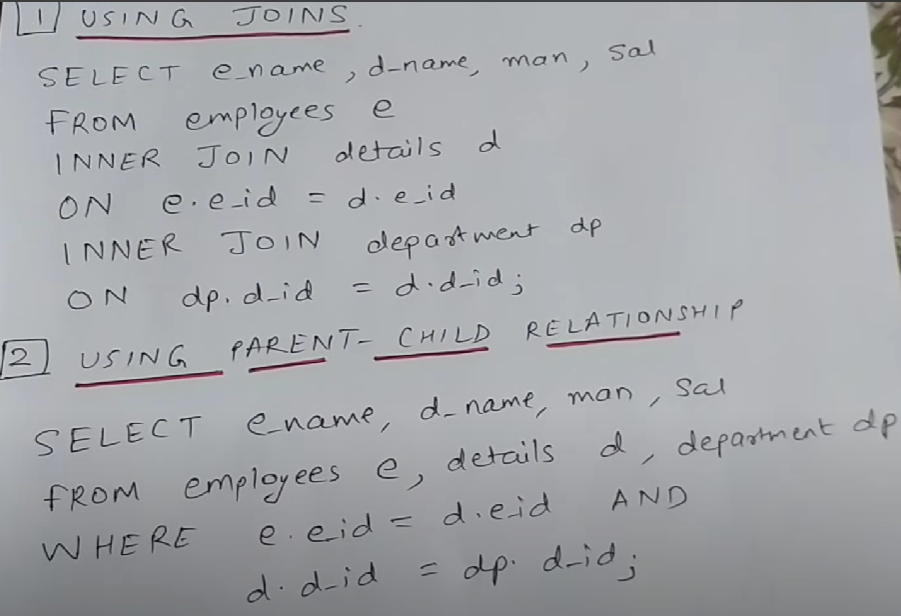 1 USING JOINS.
SELECT e_name, d_name, man, sal
FROM employees e
INNER JOIN details d
ON e.e_id = d.e_id
INNER JOIN department dp
ON dp.d_id = d.d_id;
2 USING PARENT- CHILD RELATIONSHIP
SELECT e_name, d_name, man, sal
FROM employees e, details d, department dp
WHERE e.e_id = d.e_id AND
d.d_id = dp.d_id;